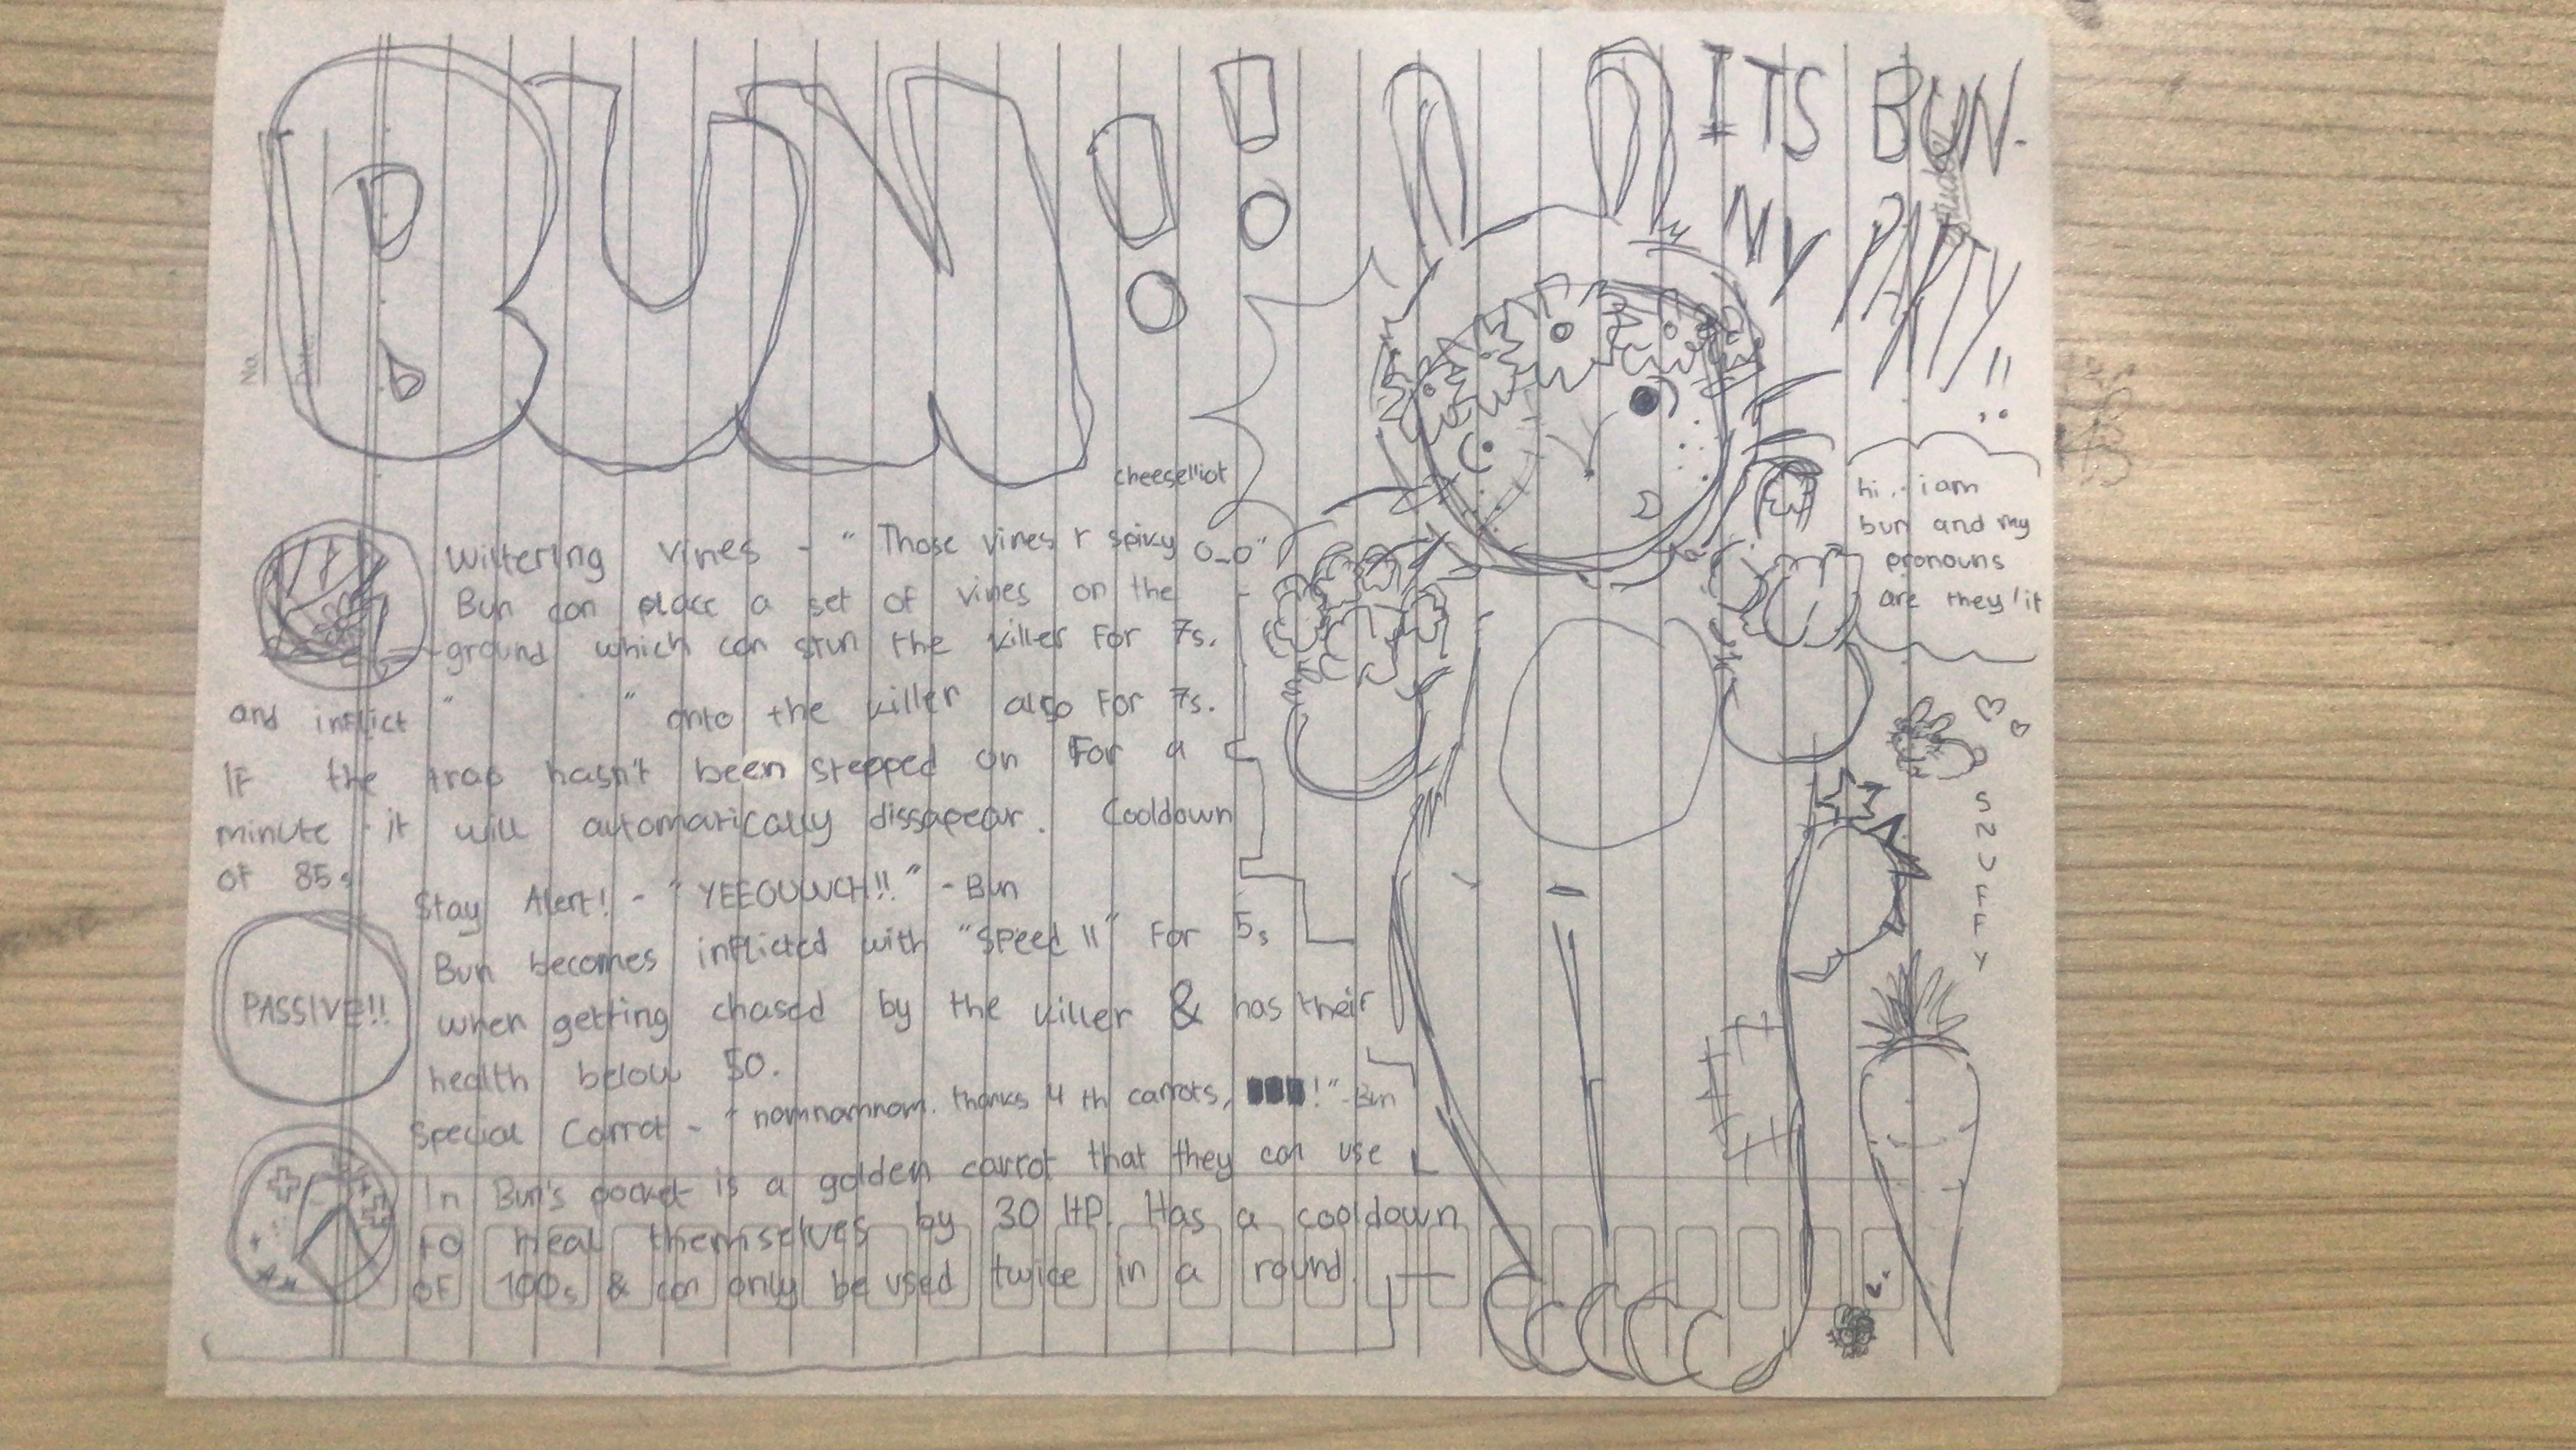 BUN!!
ITS BUN.
MY PARTY
!!
No.
Date
cheeselliot
hi.. i am
bun and my
pronouns
are they/it
Wiltering vines - " Those vines r spivy o_o" -
Bun can place a set of vines on the
ground which can stun the killer For 7s.
and inflict " " onto the killer also For 7s.
IF the trap hasn't been stepped on For a
minute it will automatically dissapear. Cooldown
oF 85s
Stay Alert! - " YEEOUWCH!! " - Bun
PASSIVE!!
Bun becomes inflicted with "Speed II" For 5s
when getting chased by the killer & has their
health below 50.
Special Carrot - " nomnamnom. thanks 4 th carrots, !" - Bun
In Bun's pocket is a golden carrot that they can use
to heal themselves by 30 HP. Has a cooldown
oF 100s & can only be used twice in a round.
SNUFFY